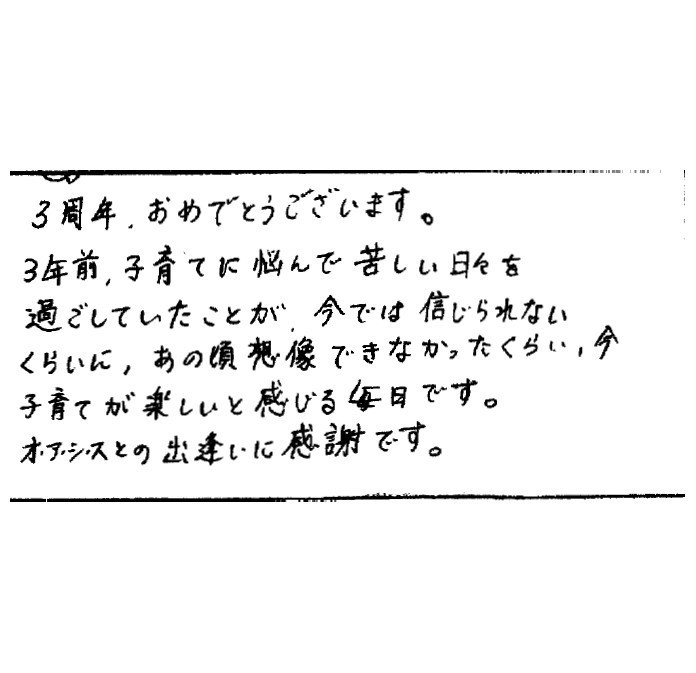 3周年、おめでとうございます。
3年前、子育てに悩んで苦しい日々を
過ごしていたことが、今では信じられない
くらいに、あの頃想像できなかったくらい、今
子育てが楽しいと感じる毎日です。
オ・ア・シ・スとの出逢いに感謝です。